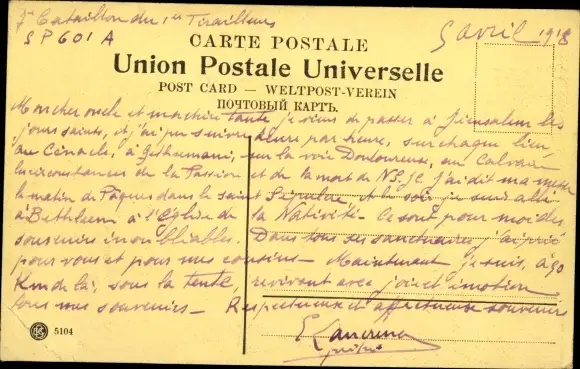 7e Bataillon du 1er Tirailleurs
SP 601 A
5 avril 1918
CARTE POSTALE
Union Postale Universelle
POST CARD — WELTPOST-VEREIN
ПОЧТОВЫЙ КАРТЪ.
Mon cher oncle et ma chère tante je viens de passer à Jérusalem les
jours saints, et j'ai pu suivre heure par heure, sur chaque lieu
au Cénacle, à Gethsemani, sur la voie Douloureuse, au Calvaire
les circonstances de la Passion et de la mort de NS. JC j'ai dit ma messe
le matin de Pâques dans le saint Sépulcre, et le soir je suis allé
à Bethléem à l'Eglise de la Nativité. Ce sont pour moi des
souvenirs inoubliables. Dans tous ses sanctuaires j'ai prié
pour vous et pour mes cousins — Maintenant je suis, à 90
Km de là, sous la tente, revivant avec joie et émotion
tous mes souvenirs — Respectueux et affectueux souvenirs
5104